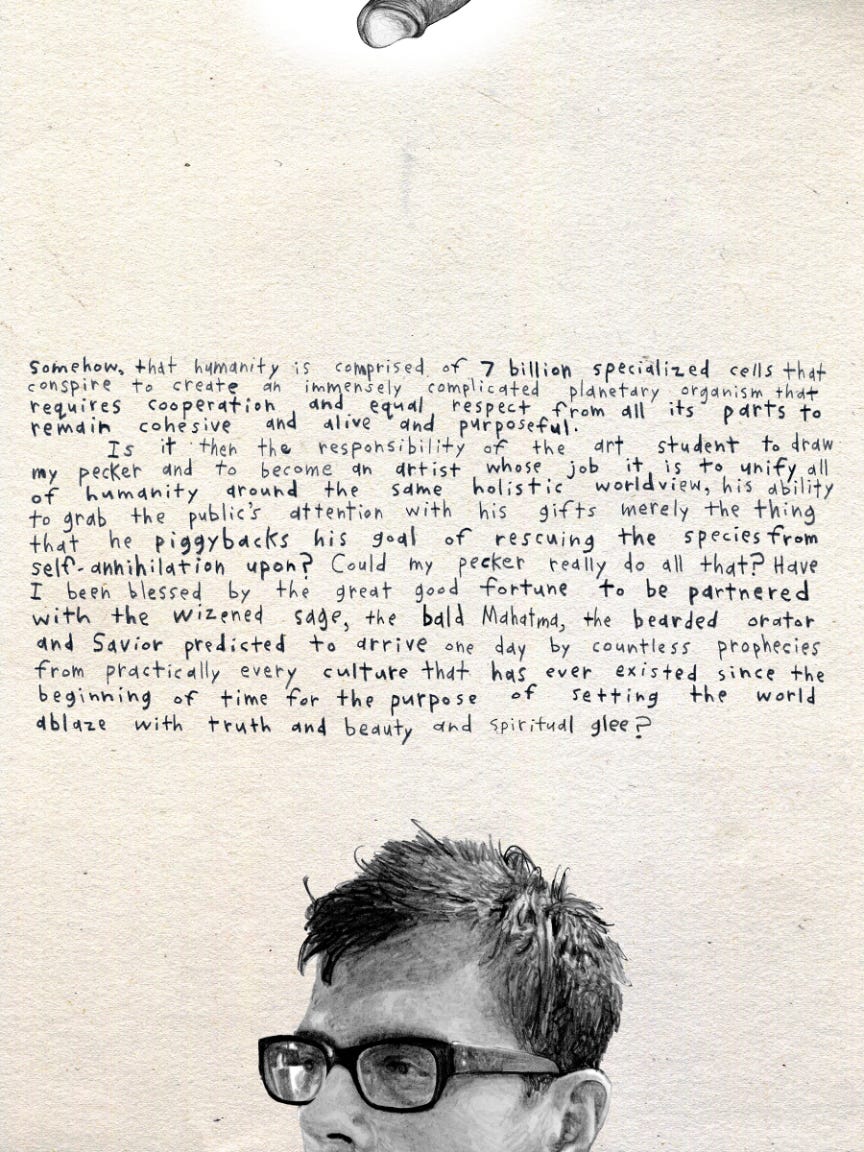 Somehow, that humanity is comprised of 7 billion specialized cells that
conspire to create an immensely complicated planetary organism that
requires cooperation and equal respect from all its parts to
remain cohesive and alive and purposeful.
Is it then the responsibility of the art student to draw
my pecker and to become an artist whose job it is to unify all
of humanity around the same holistic worldview, his ability
to grab the public's attention with his gifts merely the thing
that he piggybacks his goal of rescuing the species from
self-annihilation upon? Could my pecker really do all that? Have
I been blessed by the great good fortune to be partnered
with the wizened sage, the bald Mahatma, the bearded orator
and Savior predicted to arrive one day by countless prophecies
from practically every culture that has ever existed since the
beginning of time for the purpose of setting the world
ablaze with truth and beauty and spiritual glee?